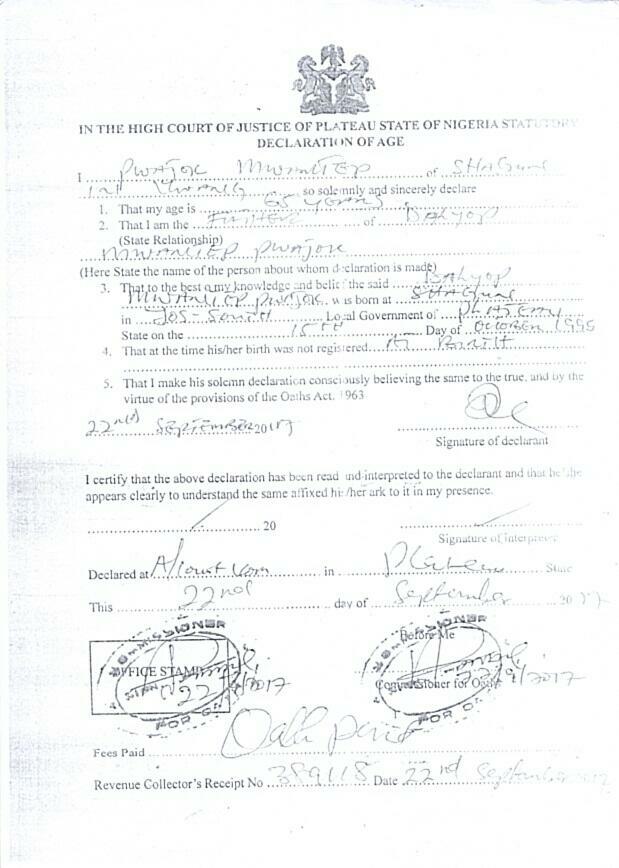 IN THE HIGH COURT OF JUSTICE OF PLATEAU STATE OF NIGERIA STATUTORY
DECLARATION OF AGE
I PWAJOK MWANTEP of SHAGUNG
so solemnly and sincerely declare
1. That my age is 65 YEARS
2. That I am the FATHER of DALYOP
(State Relationship)
MWANTEP PWAJOK
(Here State the name of the person about whom declaration is made)
3. That to the best o my knowledge and belief the said DALYOP
MWANTEP PWAJOK was born at SHAGUNG
in JOS-SOUTH Local Government of PLATEAU
State on the 15TH Day of OCTOBER 1995
4. That at the time his/her birth was not registered BIRTH
5. That I make his solemn declaration consciously believing the same to the true, and by the
virtue of the provisions of the Oaths Act. 1963
22nd SEPTEMBER 2017
Signature of declarant
I certify that the above declaration has been read and interpreted to the declarant and that he/she
appears clearly to understand the same affixed his/her ark to it in my presence.
20
Signature of interpreter
Declared at in Plateau State
This 22nd day of September 2017
COMMISSIONER FOR OATHS
OFFICE STAMP
22/9/2017
Before Me
COMMISSIONER FOR OATHS
Commissioner for Oaths
22/9/2017
Fees Paid Oath paid
Revenue Collector's Receipt No 389115 Date 22nd September 2017